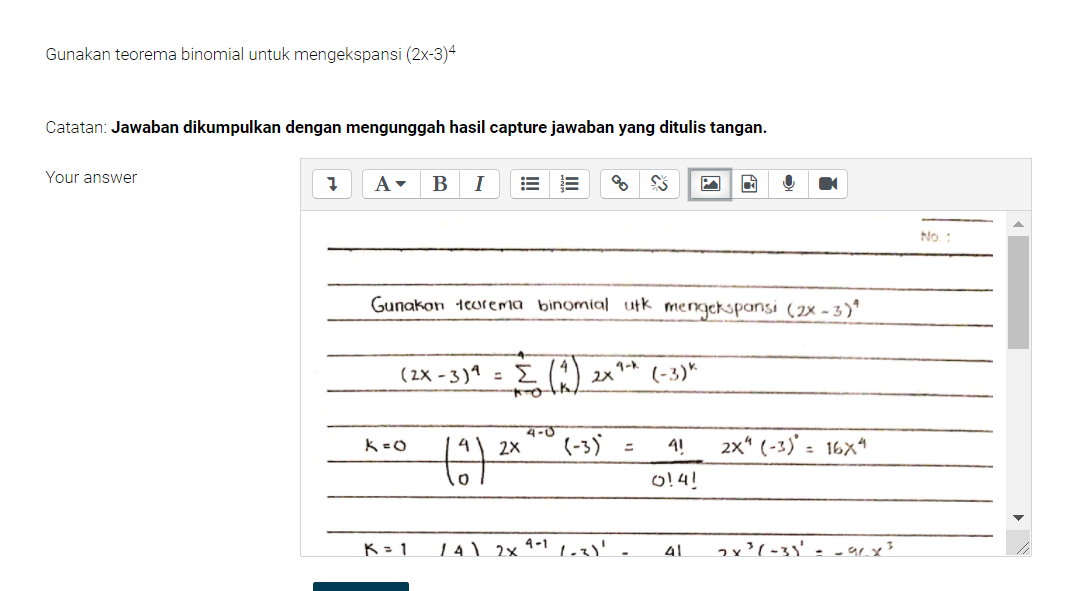 Gunakan teorema binomial untuk mengekspansi (2x-3)⁴
Catatan: Jawaban dikumpulkan dengan mengunggah hasil capture jawaban yang ditulis tangan.
Your answer
A B I
No. :
Gunakan teorema binomial utk mengekspansi (2x - 3)⁴
(2x - 3)⁴ = 4 Σ K=0 (4 K) 2x⁴⁻ᵏ (-3)ᵏ
K = 0 (4 0) 2x⁴⁻⁰ (-3)⁰ = 4! / 0! 4! 2x⁴ (-3)⁰ = 16x⁴
K = 1 (4 2x⁴⁻¹ (-3)¹ = 4! 2x³ (-3)¹ = -96x³